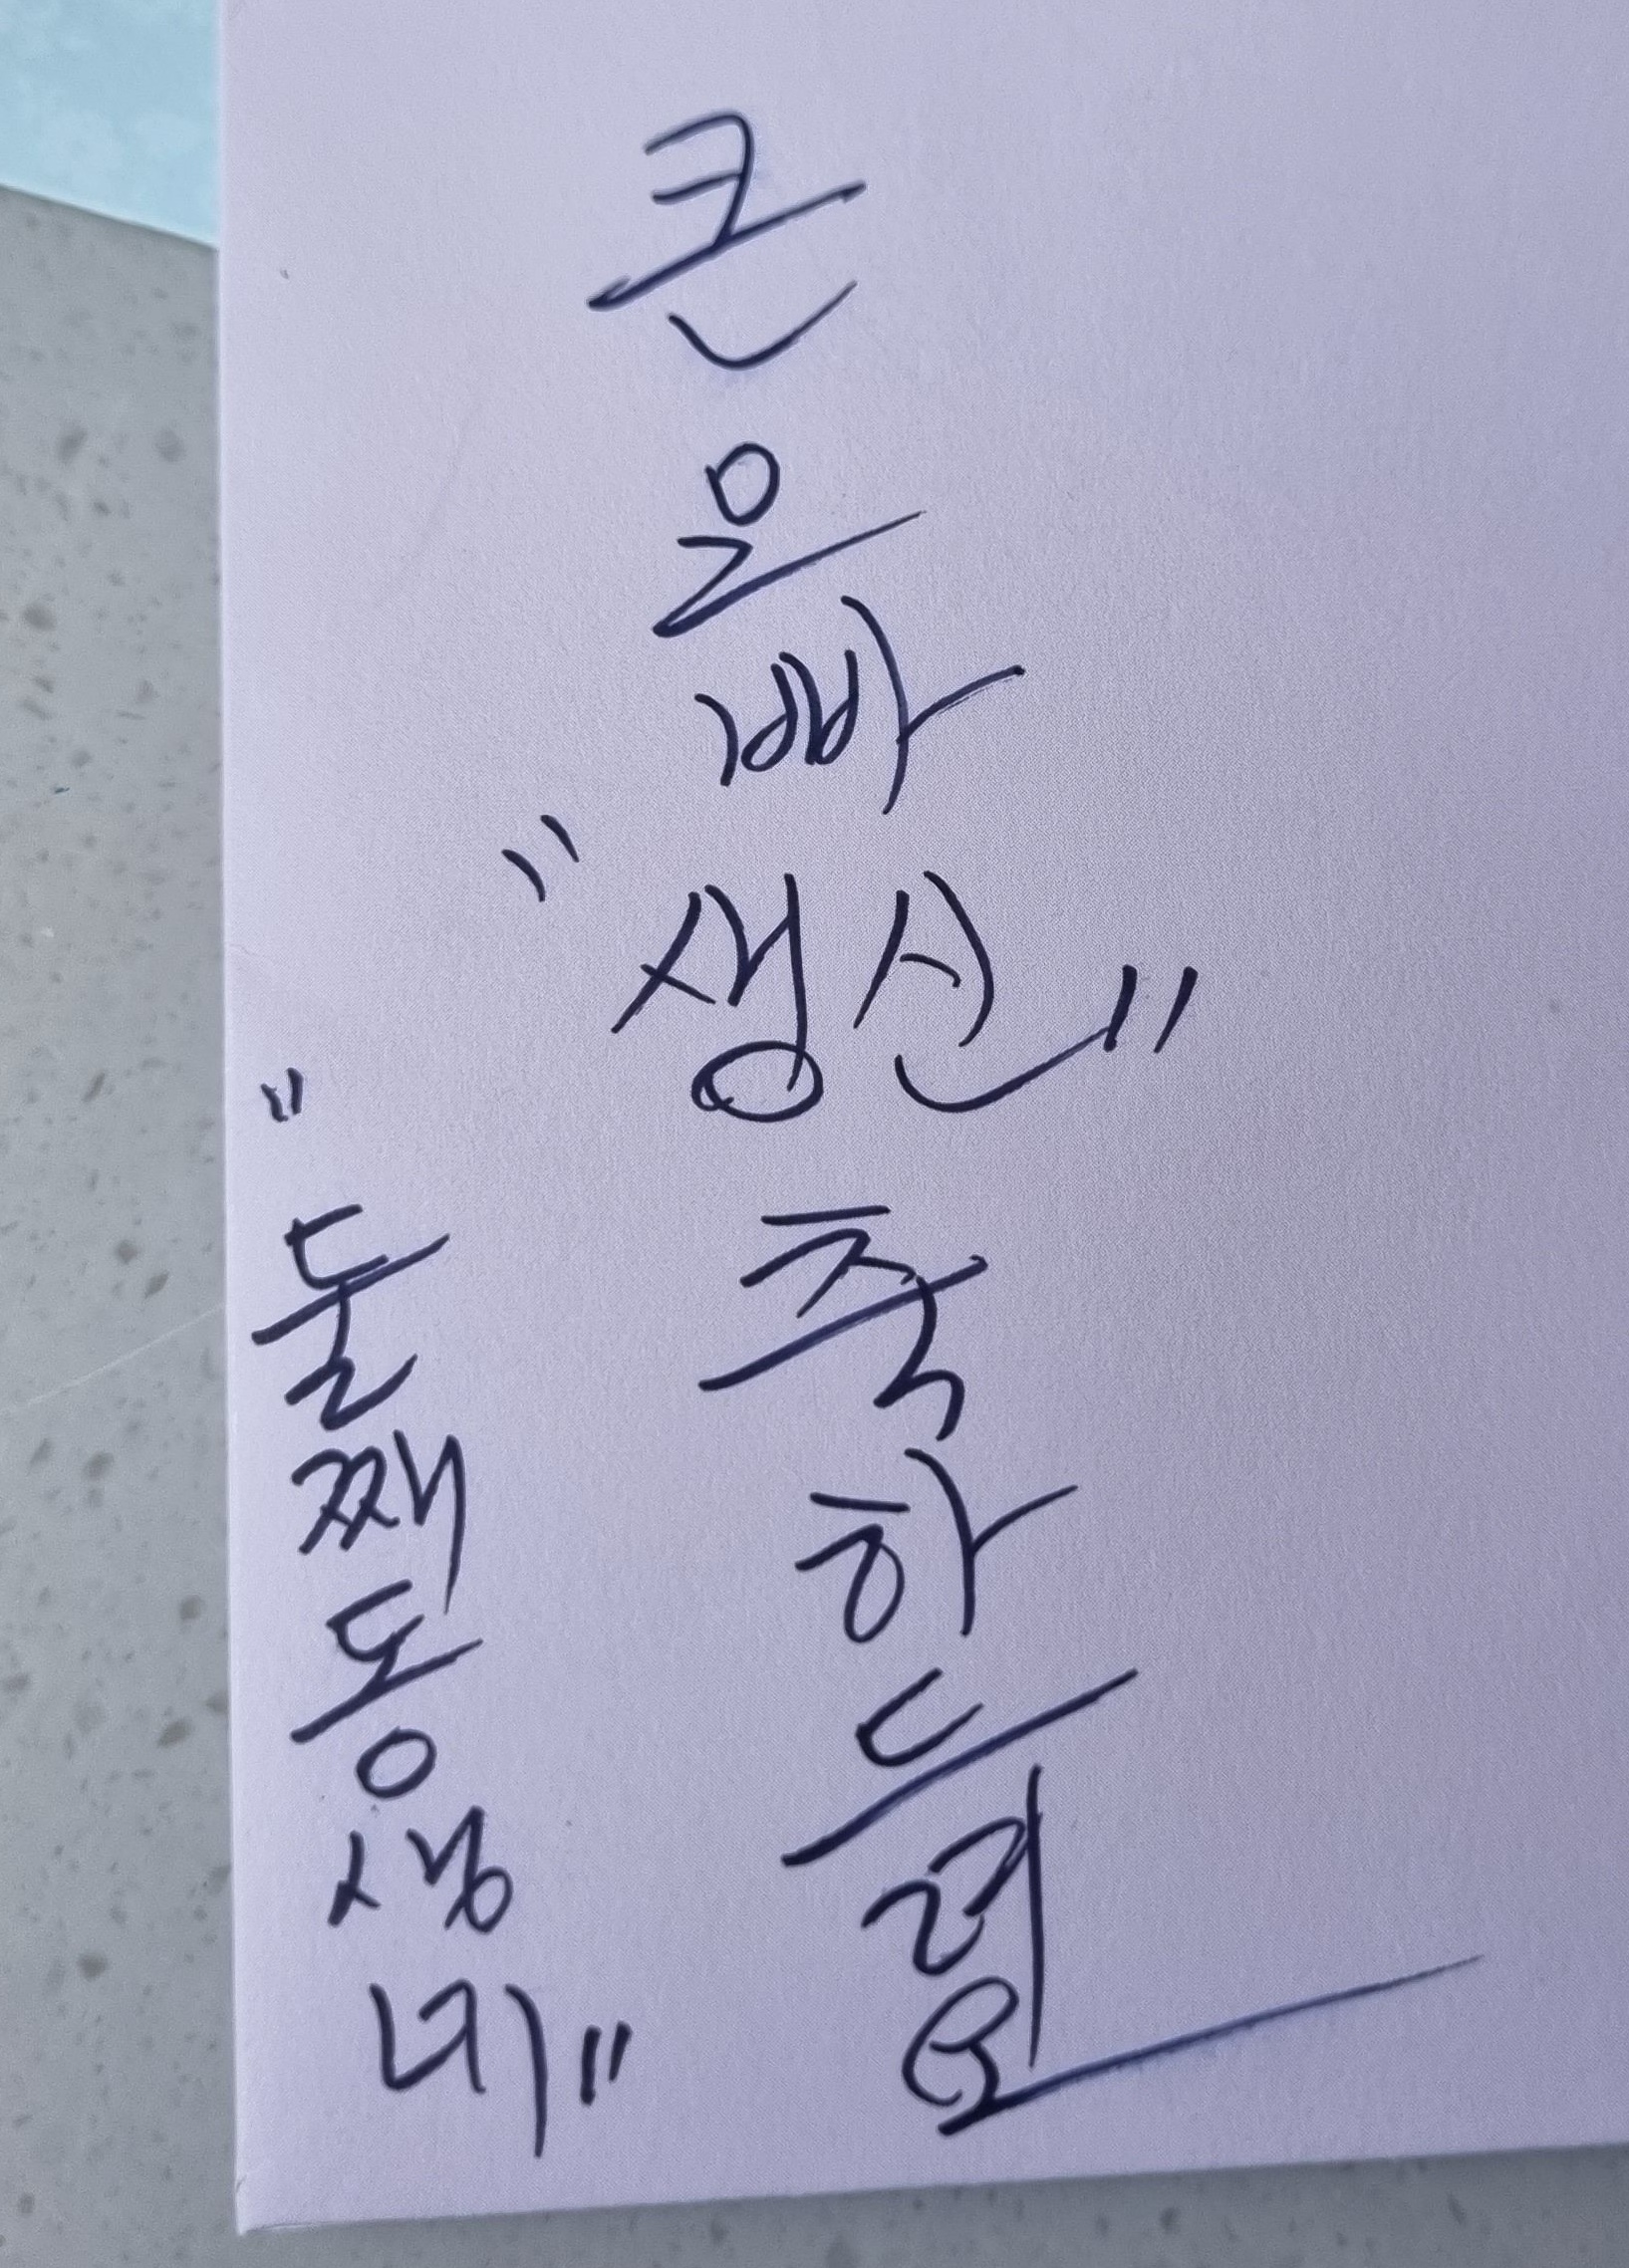 큰오빠 "생신" 축하드려요
"둘째동생네"